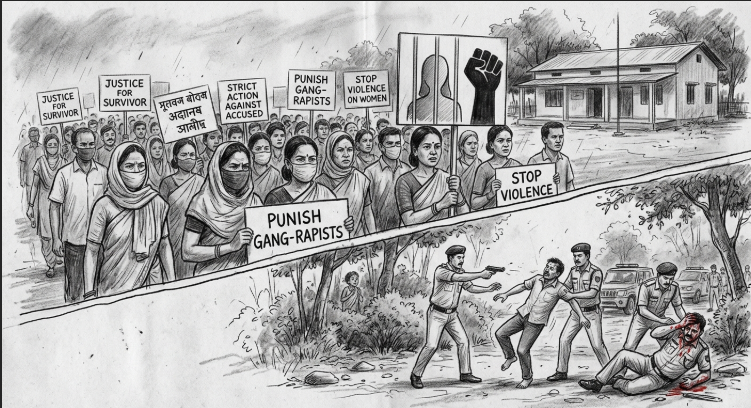 JUSTICE
FOR
SURVIVOR
JUSTICE
FOR
SURVIVOR
STRICT
ACTION
AGAINST
ACCUSED
PUNISH
GANG-
RAPISTS
STOP
VIOLENCE
ON WOMEN
STOP
VIOLENCE
PUNISH
GANG-RAPISTS